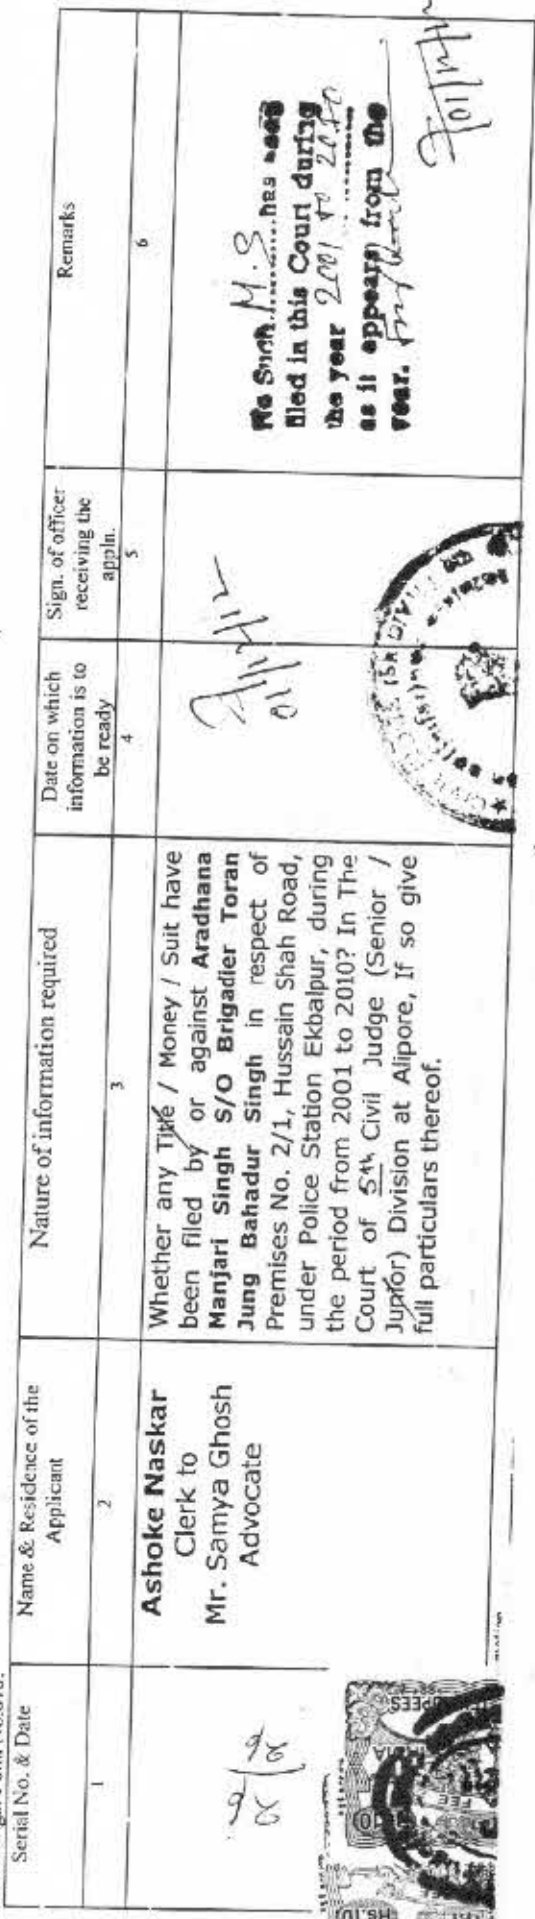 Serial No. & Date
Name & Residence of the
Applicant
Nature of information required
Date on which
information is to
be ready
Sign. of officer
receiving the
appln.
Remarks
1
2
3
4
5
6
Ashoke Naskar
Clerk to
Mr. Samya Ghosh
Advocate
Whether any Title / Money / Suit have
been filed by or against Aradhana
Manjari Singh S/O Brigadier Toran
Jung Bahadur Singh in respect of
Premises No. 2/1, Hussain Shah Road,
under Police Station Ekbalpur, during
the period from 2001 to 2010? In The
Court of 5th Civil Judge (Senior /
Junior) Division at Alipore, If so give
full particulars thereof.
No Such M.S has been
filed in this Court during
the year 2001 to 2010
as it appears from the
year.